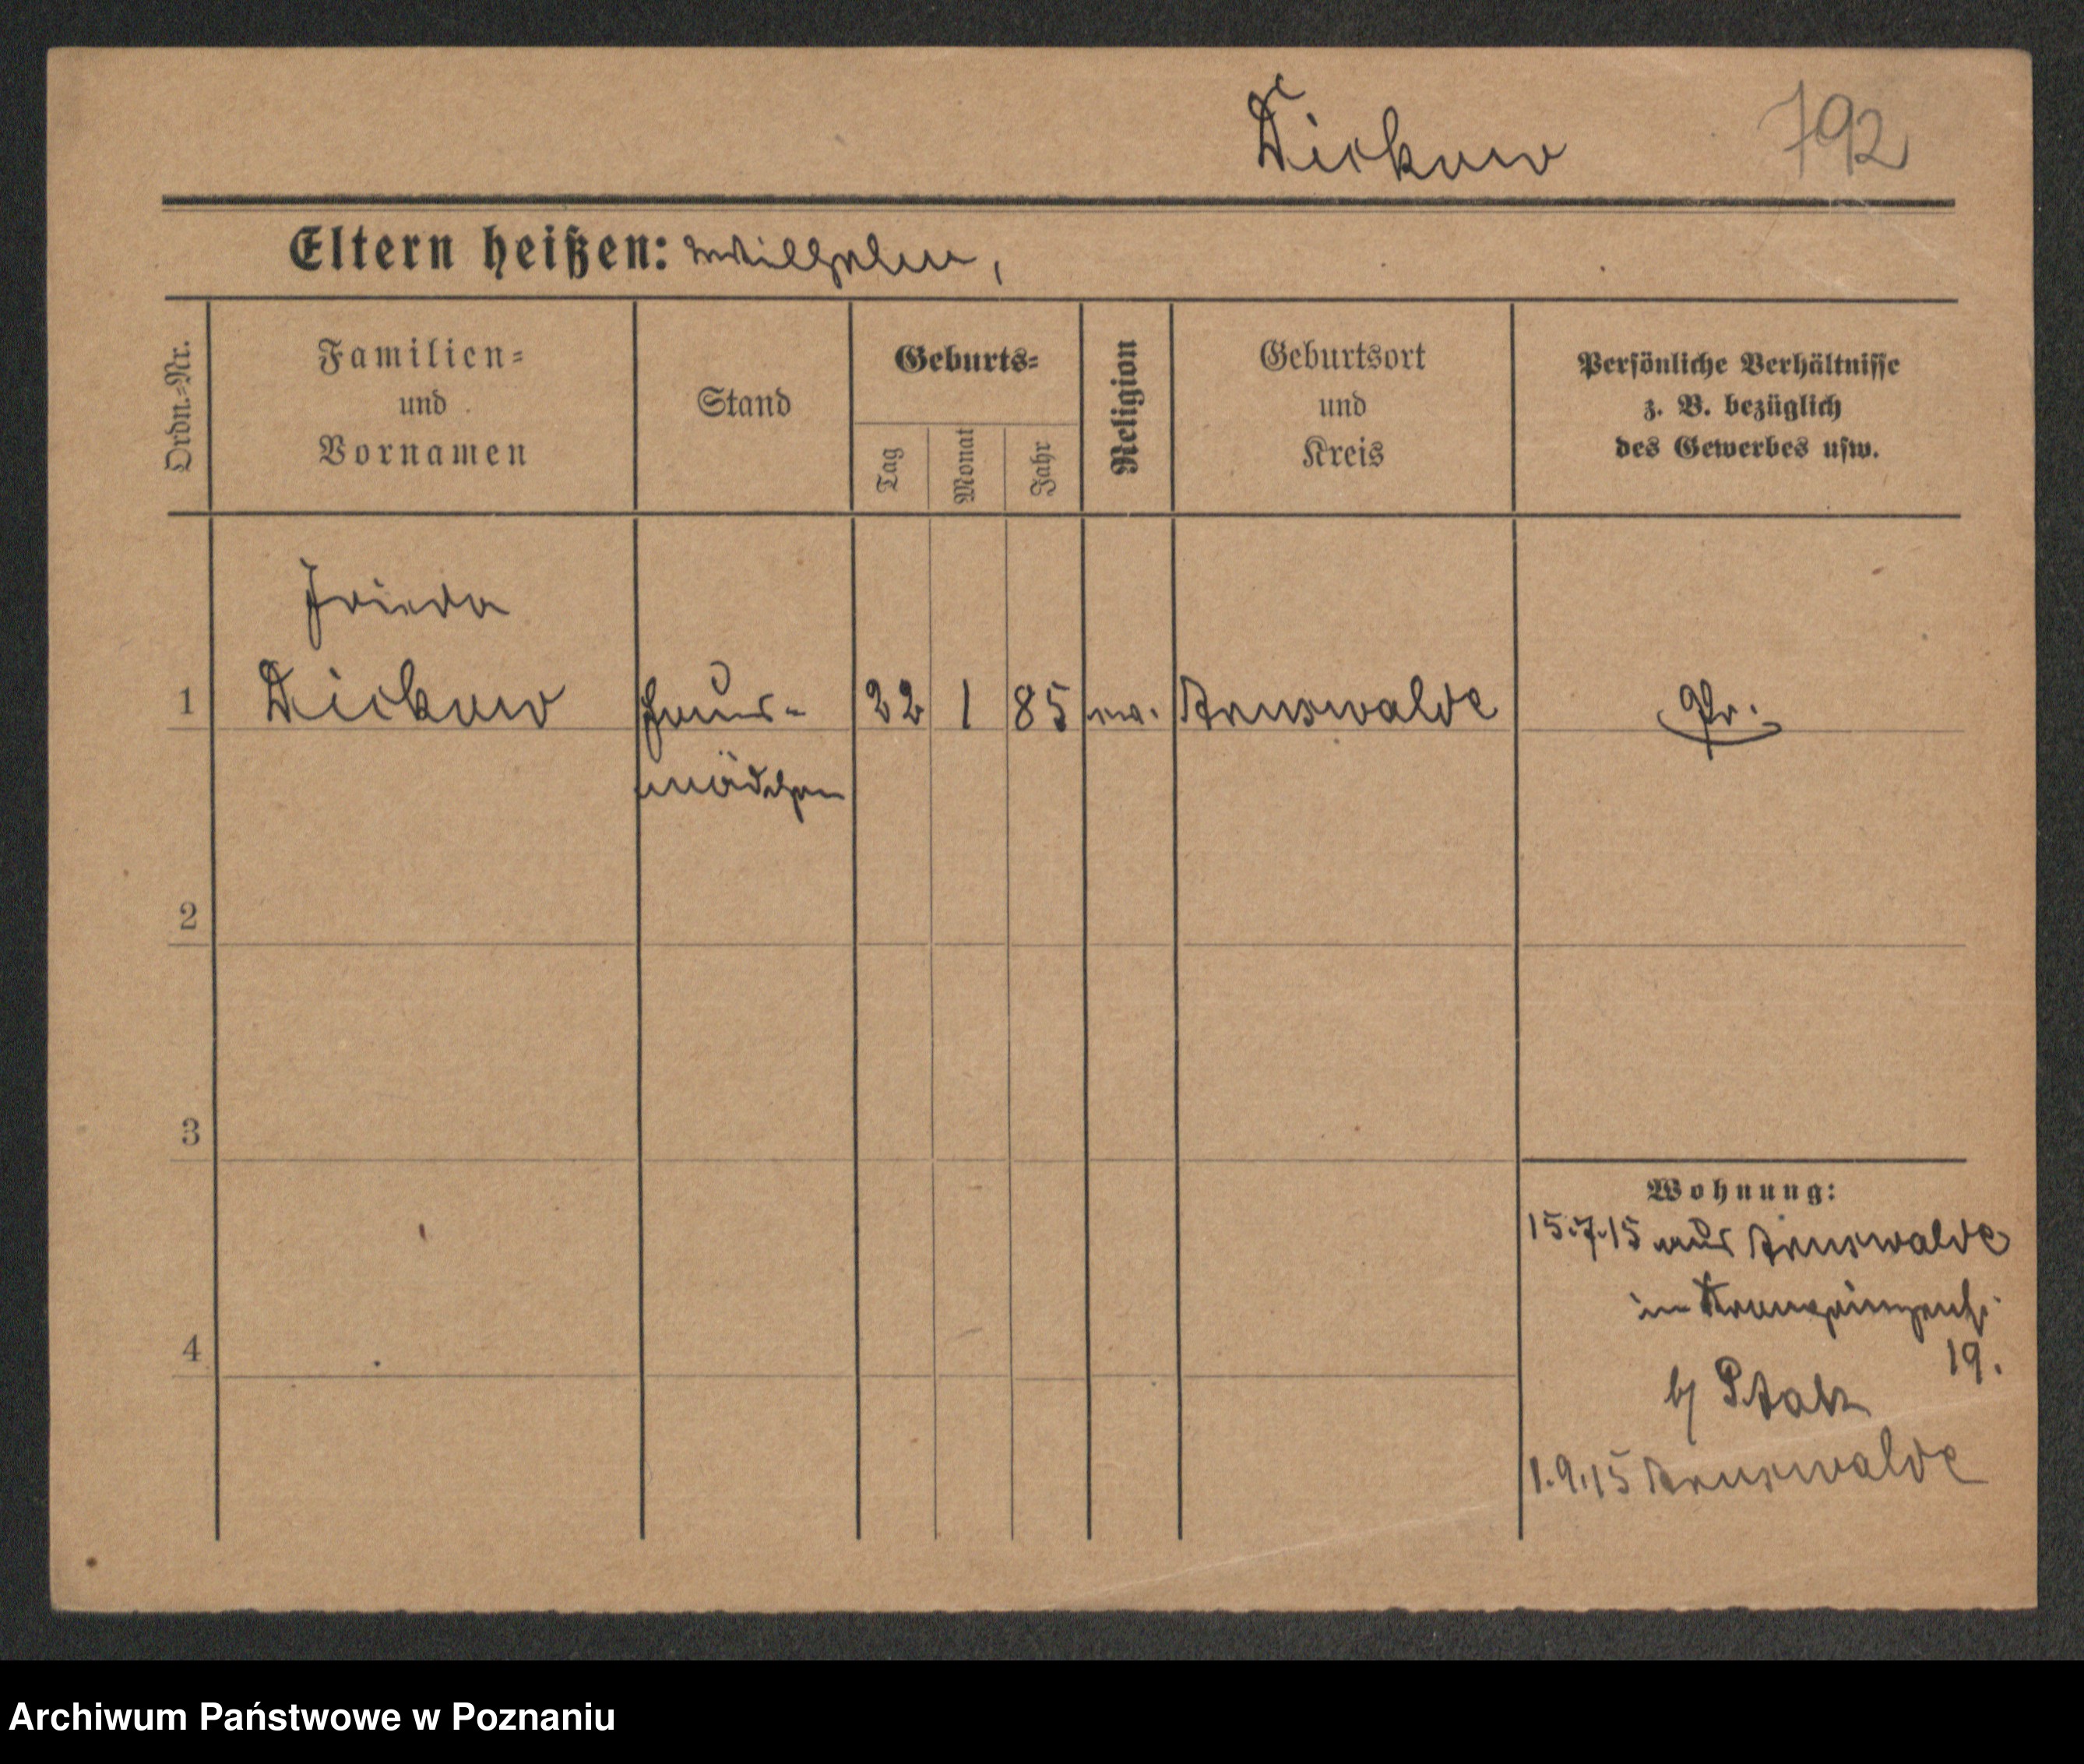 Dickow 792
Eltern heißen: Wilhelm,
Ordn.=Nr.
Familien=
und
Vornamen
Stand
Geburts=
Tag
Monat
Jahr
Religion
Geburtsort
und
Kreis
Persönliche Verhältnisse
z. B. bezüglich
des Gewerbes usw.
Frieda
1 Dickow Haus- 22 1 85 ev. Arnswalde Pr.
mädchen
2
3
4
Wohnung:
15.7.15 aus Arnswalde
in Kronprinzenstr.
19.
b/
1.9.15 Arnswalde
Archiwum Państwowe w Poznaniu